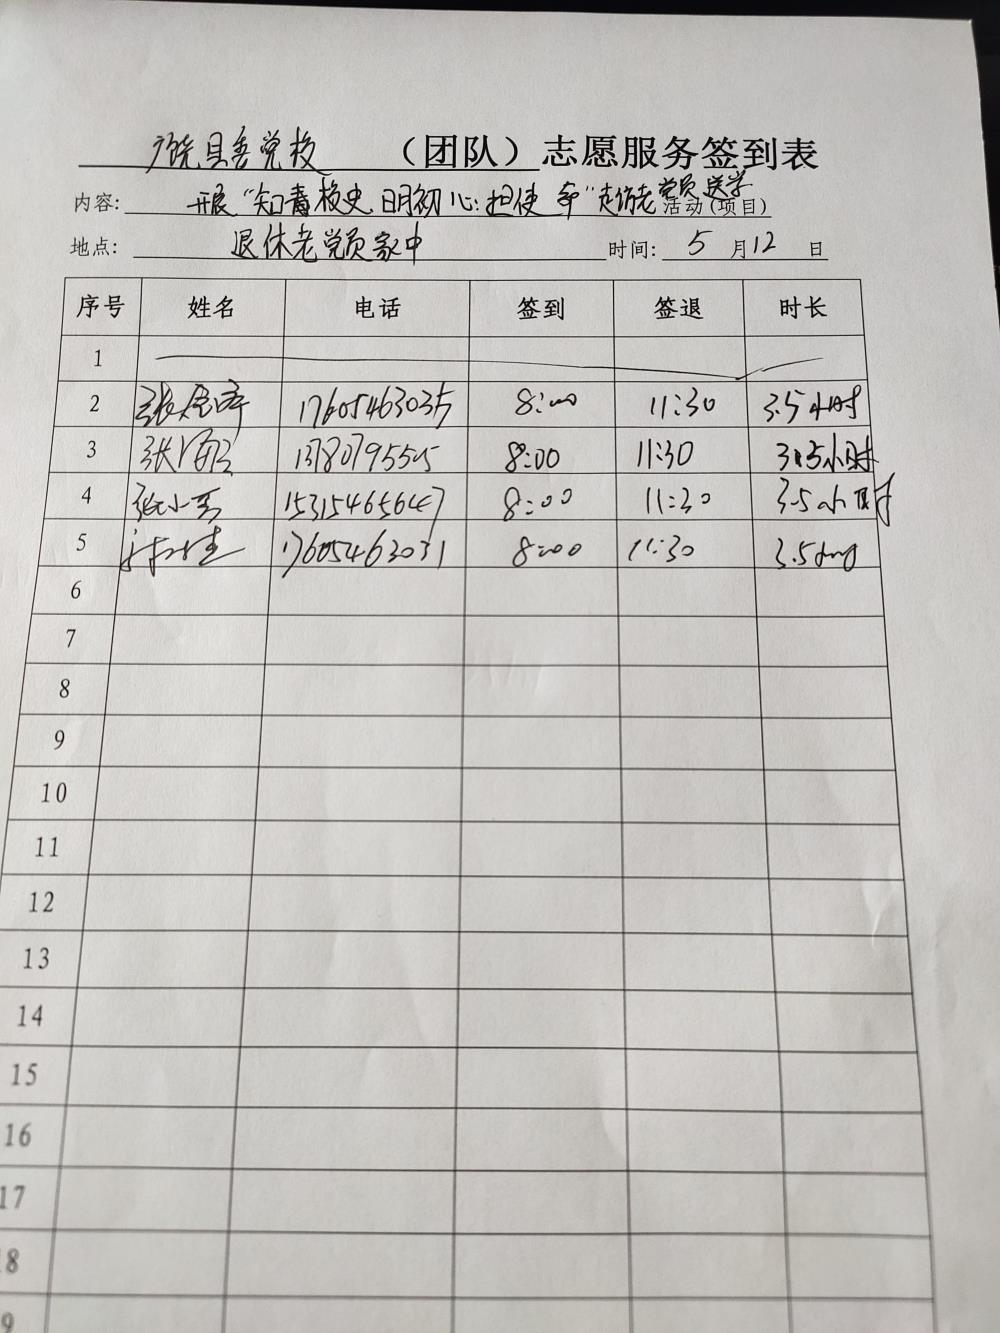 广饶县委党校（团队）志愿服务签到表
内容: 开展"知青校史 明初心 担使命"走访老党员送学活动(项目)
地点: 退休老党员家中 时间: 5月12日
序号 姓名 电话 签到 签退 时长
1
2 17605463035 8:00 11:30 3.5小时
3 张 8:00 11:30 3.5小时
4 张小 15315465647 8:00 11:30 3.5小时
5 17605463031 8:00 11:30 3.5小时
6
7
8
9
10
11
12
13
14
15
16
17
18
19